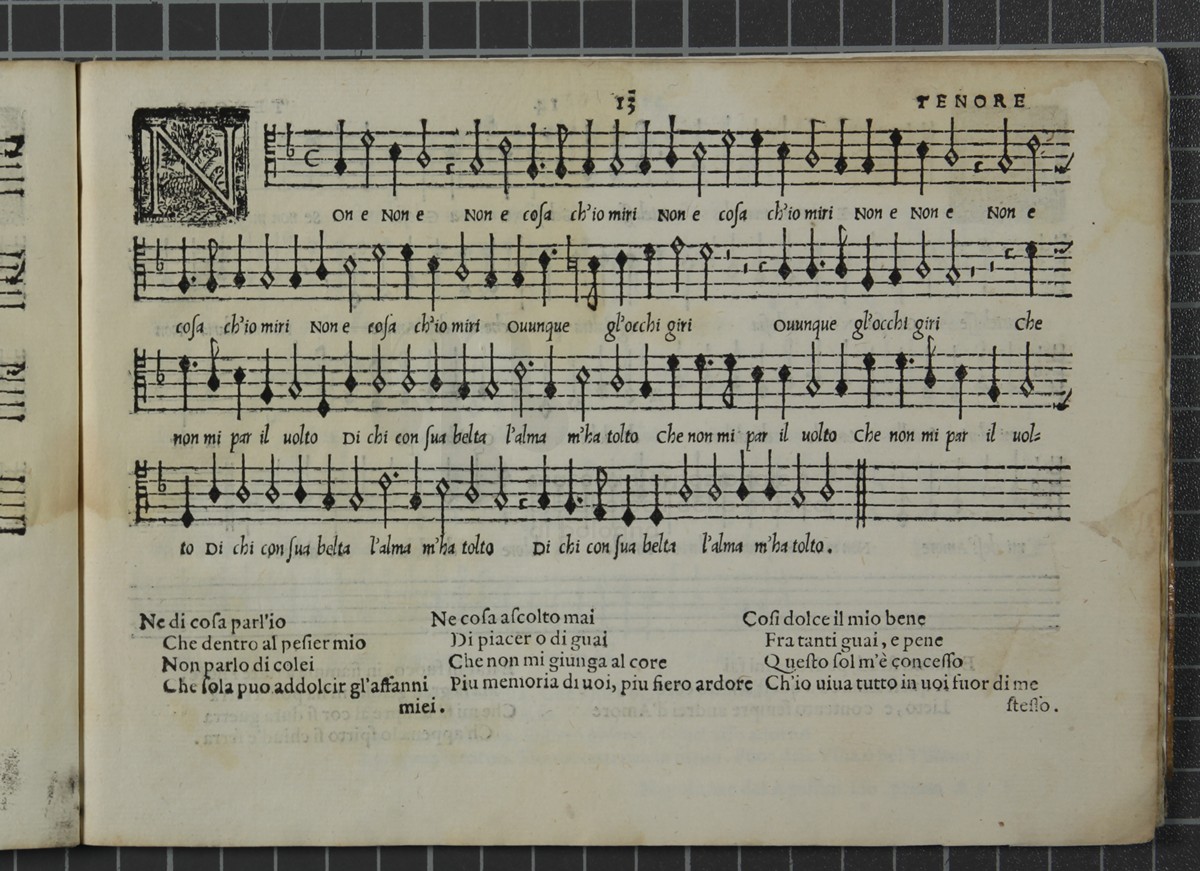 13
TENORE
N
On e Non e Non e coſa ch'io miri Non e coſa ch'io miri Non e Non e Non e
coſa ch'io miri Non e coſa ch'io miri Ouunque gl'occhi giri Ouunque gl'occhi giri Che
non mi par il uolto Di chi con ſua belta l'alma m'ha tolto Che non mi par il uolto Che non mi par il uol=
to Di chi con ſua belta l'alma m'ha tolto Di chi con ſua belta l'alma m'ha tolto.
Ne di coſa parl'io
Che dentro al peſier mio
Non parlo di colei
Che ſola puo addolcir gl'affanni
miei.
Ne coſa aſcolto mai
Di piacer o di guai
Che non mi giunga al core
Piu memoria di uoi, piu fiero ardore
Coſi dolce il mio bene
Fra tanti guai, e pene
Queſto ſol m'è conceſſo
Ch'io uiua tutto in uoi fuor di me
ſteſſo.